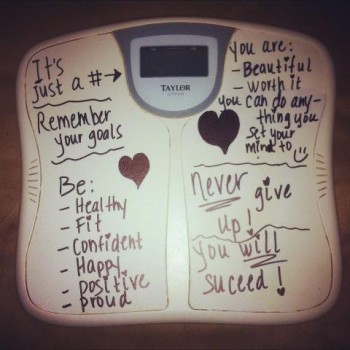 It's
just a # →
Remember
your goals
Be:
- Healthy
- Fit
- Confident
- Happy
- positive
- proud
TAYLOR
you are:
- Beautiful
- worth it
you can do any-
thing you
set your
mind to
Never give
up!
you will
suceed!